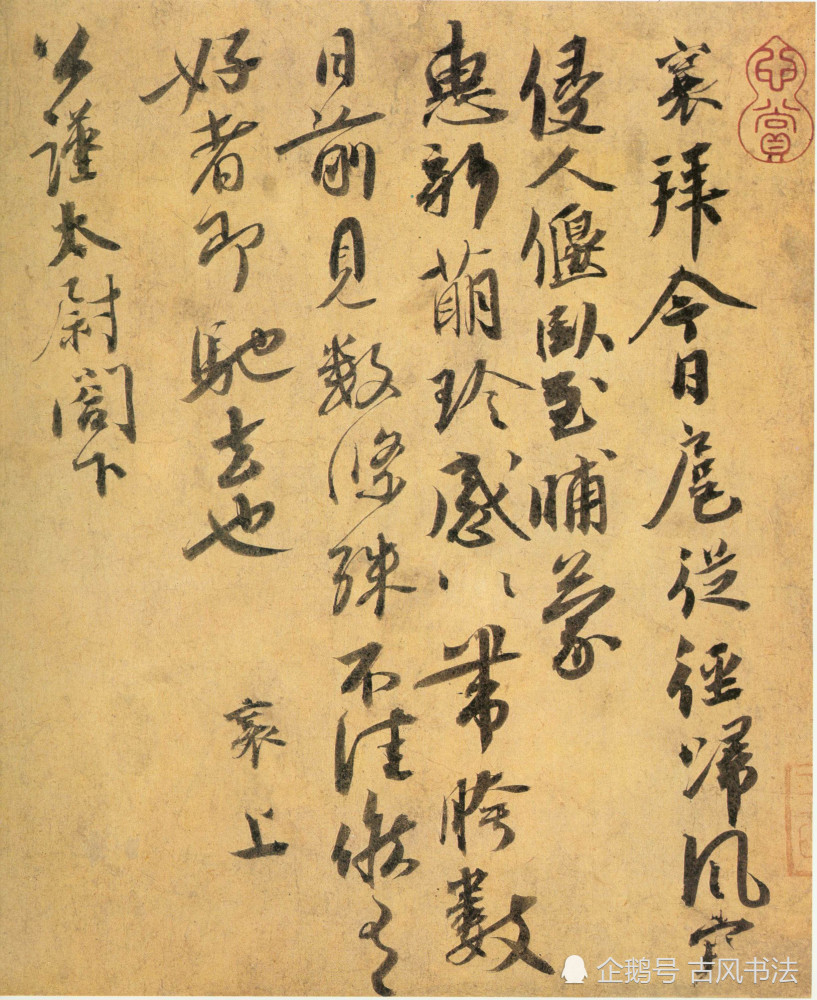 襄拜今日扈從徑歸風寒
侵人偃臥至晡蒙
惠新萌珍感〻帶胯數
日前見数條殊不佳候有
好者即馳去也
襄上
公謹太尉閣下
企鹅号 古风书法